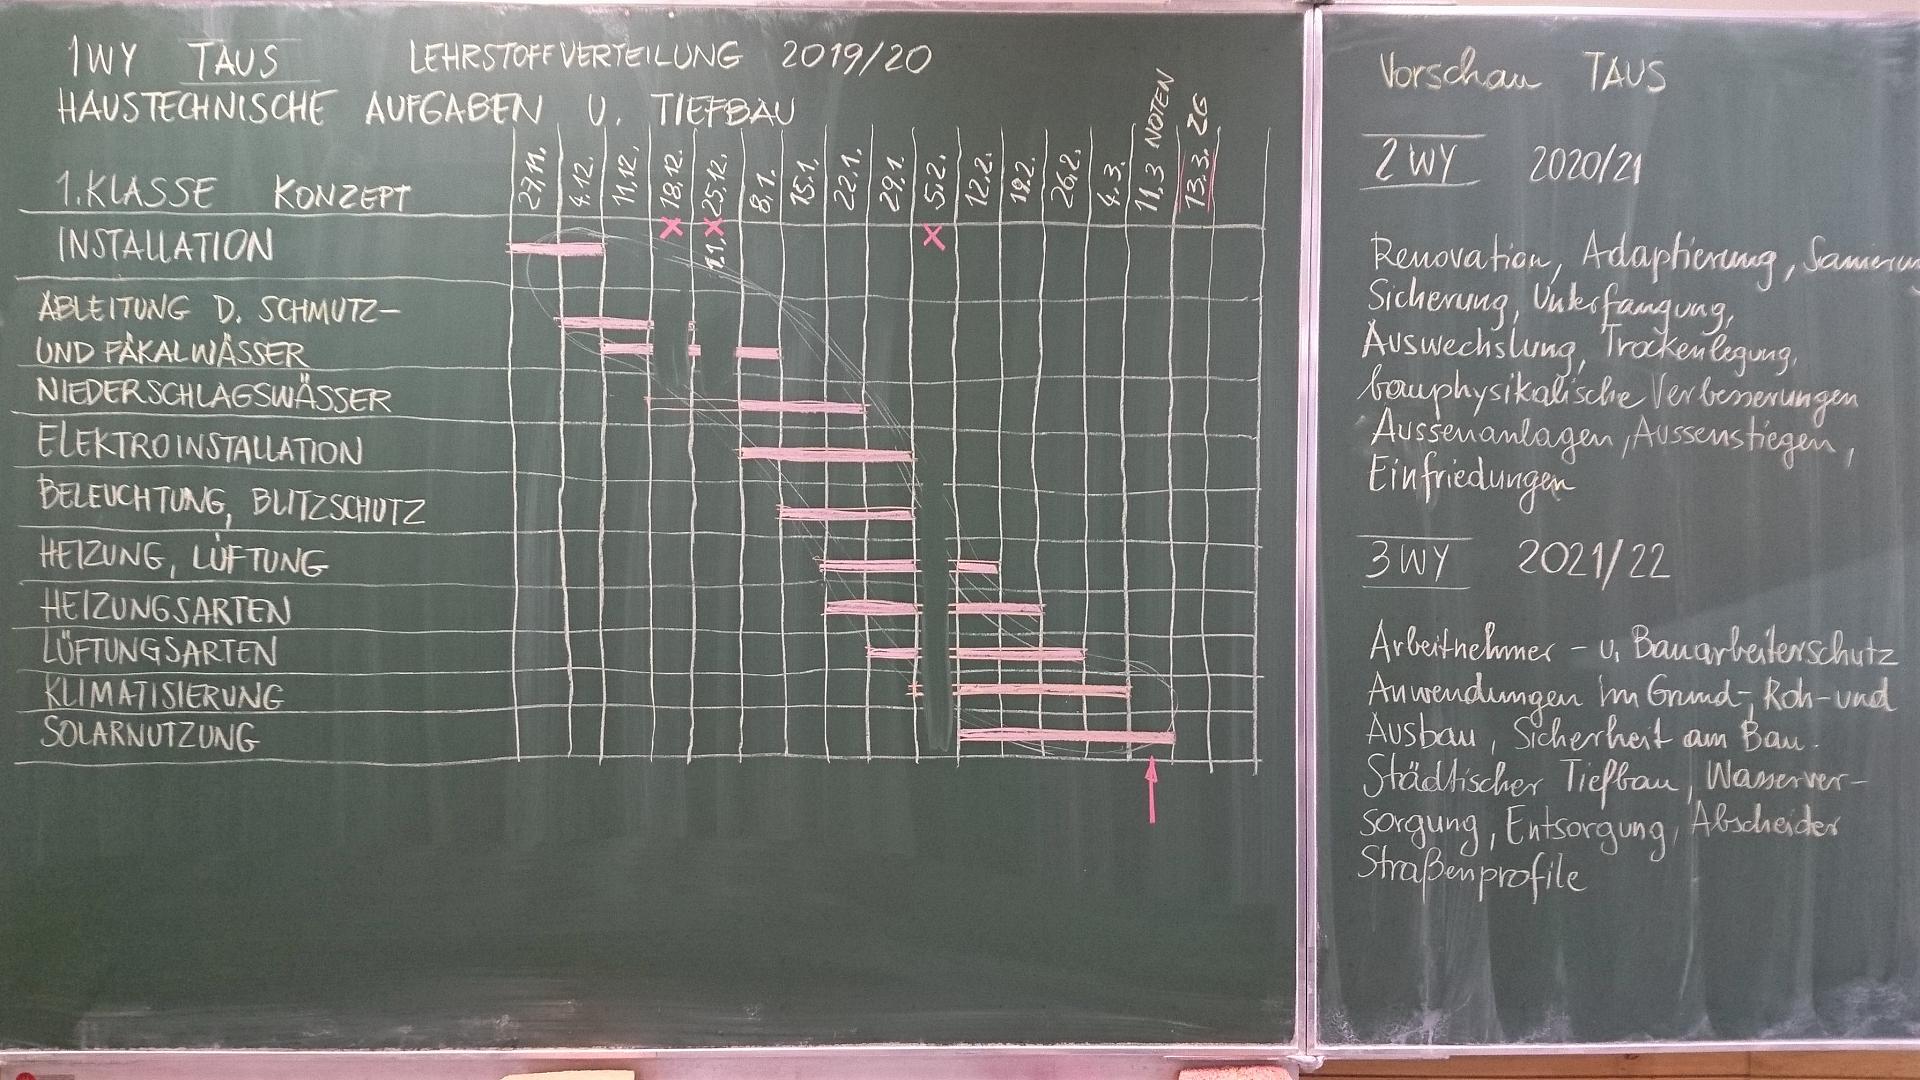 1WY TAUS LEHRSTOFFVERTEILUNG 2019/20
HAUSTECHNISCHE AUFGABEN U. TIEFBAU
1.KLASSE KONZEPT
27.11. 4.12. 11.12. 18.12. 25.12. 8.1. 15.1. 22.1. 29.1. 5.2. 12.2. 19.2. 26.2. 4.3. 11.3 NOTEN 13.3. ZG
X X 1.1. X
INSTALLATION
ABLEITUNG D. SCHMUTZ-
UND FÄKALWÄSSER
NIEDERSCHLAGSWÄSSER
ELEKTROINSTALLATION
BELEUCHTUNG, BLITZSCHUTZ
HEIZUNG, LÜFTUNG
HEIZUNGSARTEN
LÜFTUNGSARTEN
KLIMATISIERUNG
SOLARNUTZUNG
Vorschau TAUS
2WY 2020/21
Renovation, Adaptierung, Sanierung
Sicherung, Unterfangung,
Auswechslung, Trockenlegung,
bauphysikalische Verbesserungen
Aussenanlagen, Aussenstiegen,
Einfriedungen
3WY 2021/22
Arbeitnehmer- u. Bauarbeiterschutz
Anwendungen im Grund-, Roh- und
Ausbau, Sicherheit am Bau.
Städtischer Tiefbau, Wasserver-
sorgung, Entsorgung, Abscheider
Straßenprofile